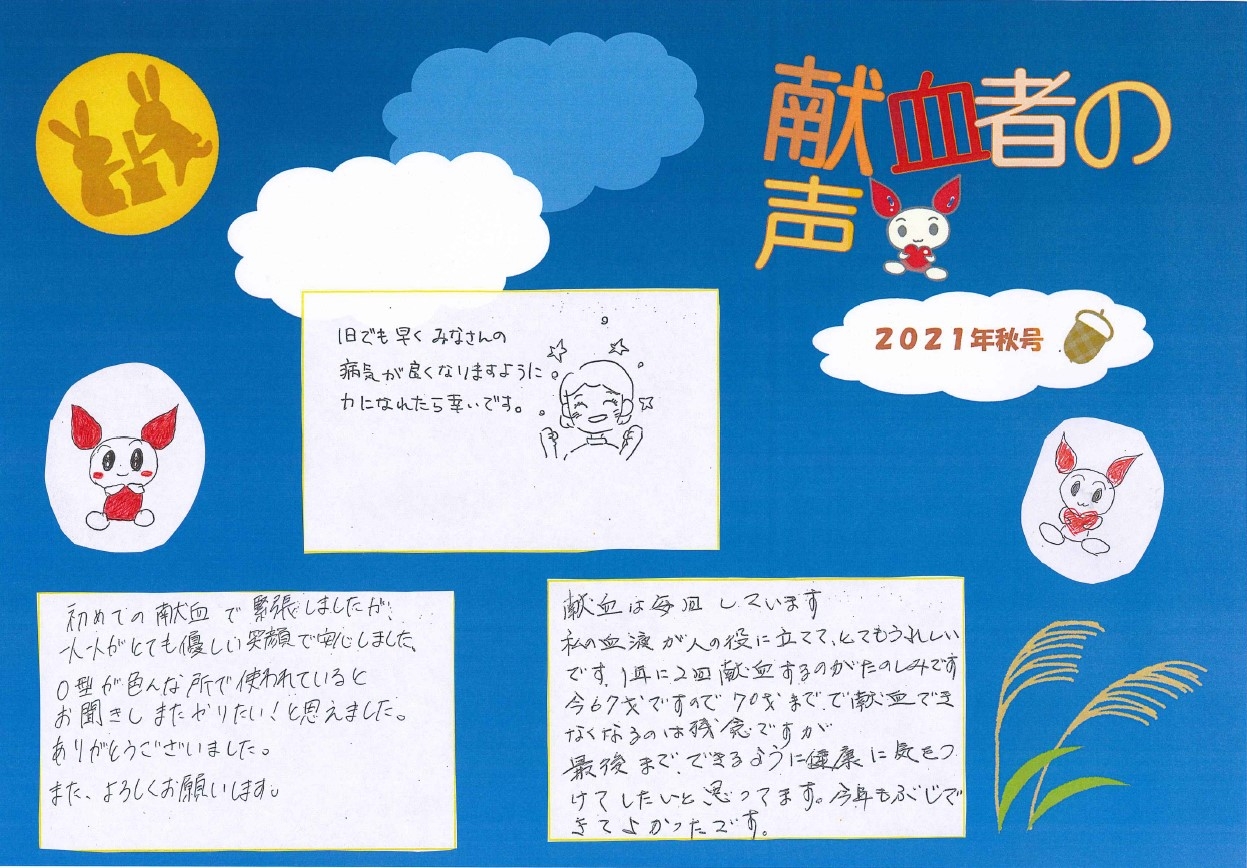 献血者の
声
2021年秋号
1日でも早くみなさんの
病気が良くなりますように
力になれたら幸いです。
初めての献血で緊張しましたが、
一人一人がとても優しい笑顔で安心しました。
O型が色んな所で使われていると
お聞きしまたやりたい!と思えました。
ありがとうございました。
また、よろしくお願いします。
献血は毎回しています
私の血液が人の役に立てて、とてもうれしい
です。1年に2回献血するのがたのしみです
今67才ですので70才まで、で献血でき
なくなるのは残念ですが
最後まで、できるように健康に気をつ
けてしたいと思ってます。今年もぶじで
きてよかったです。